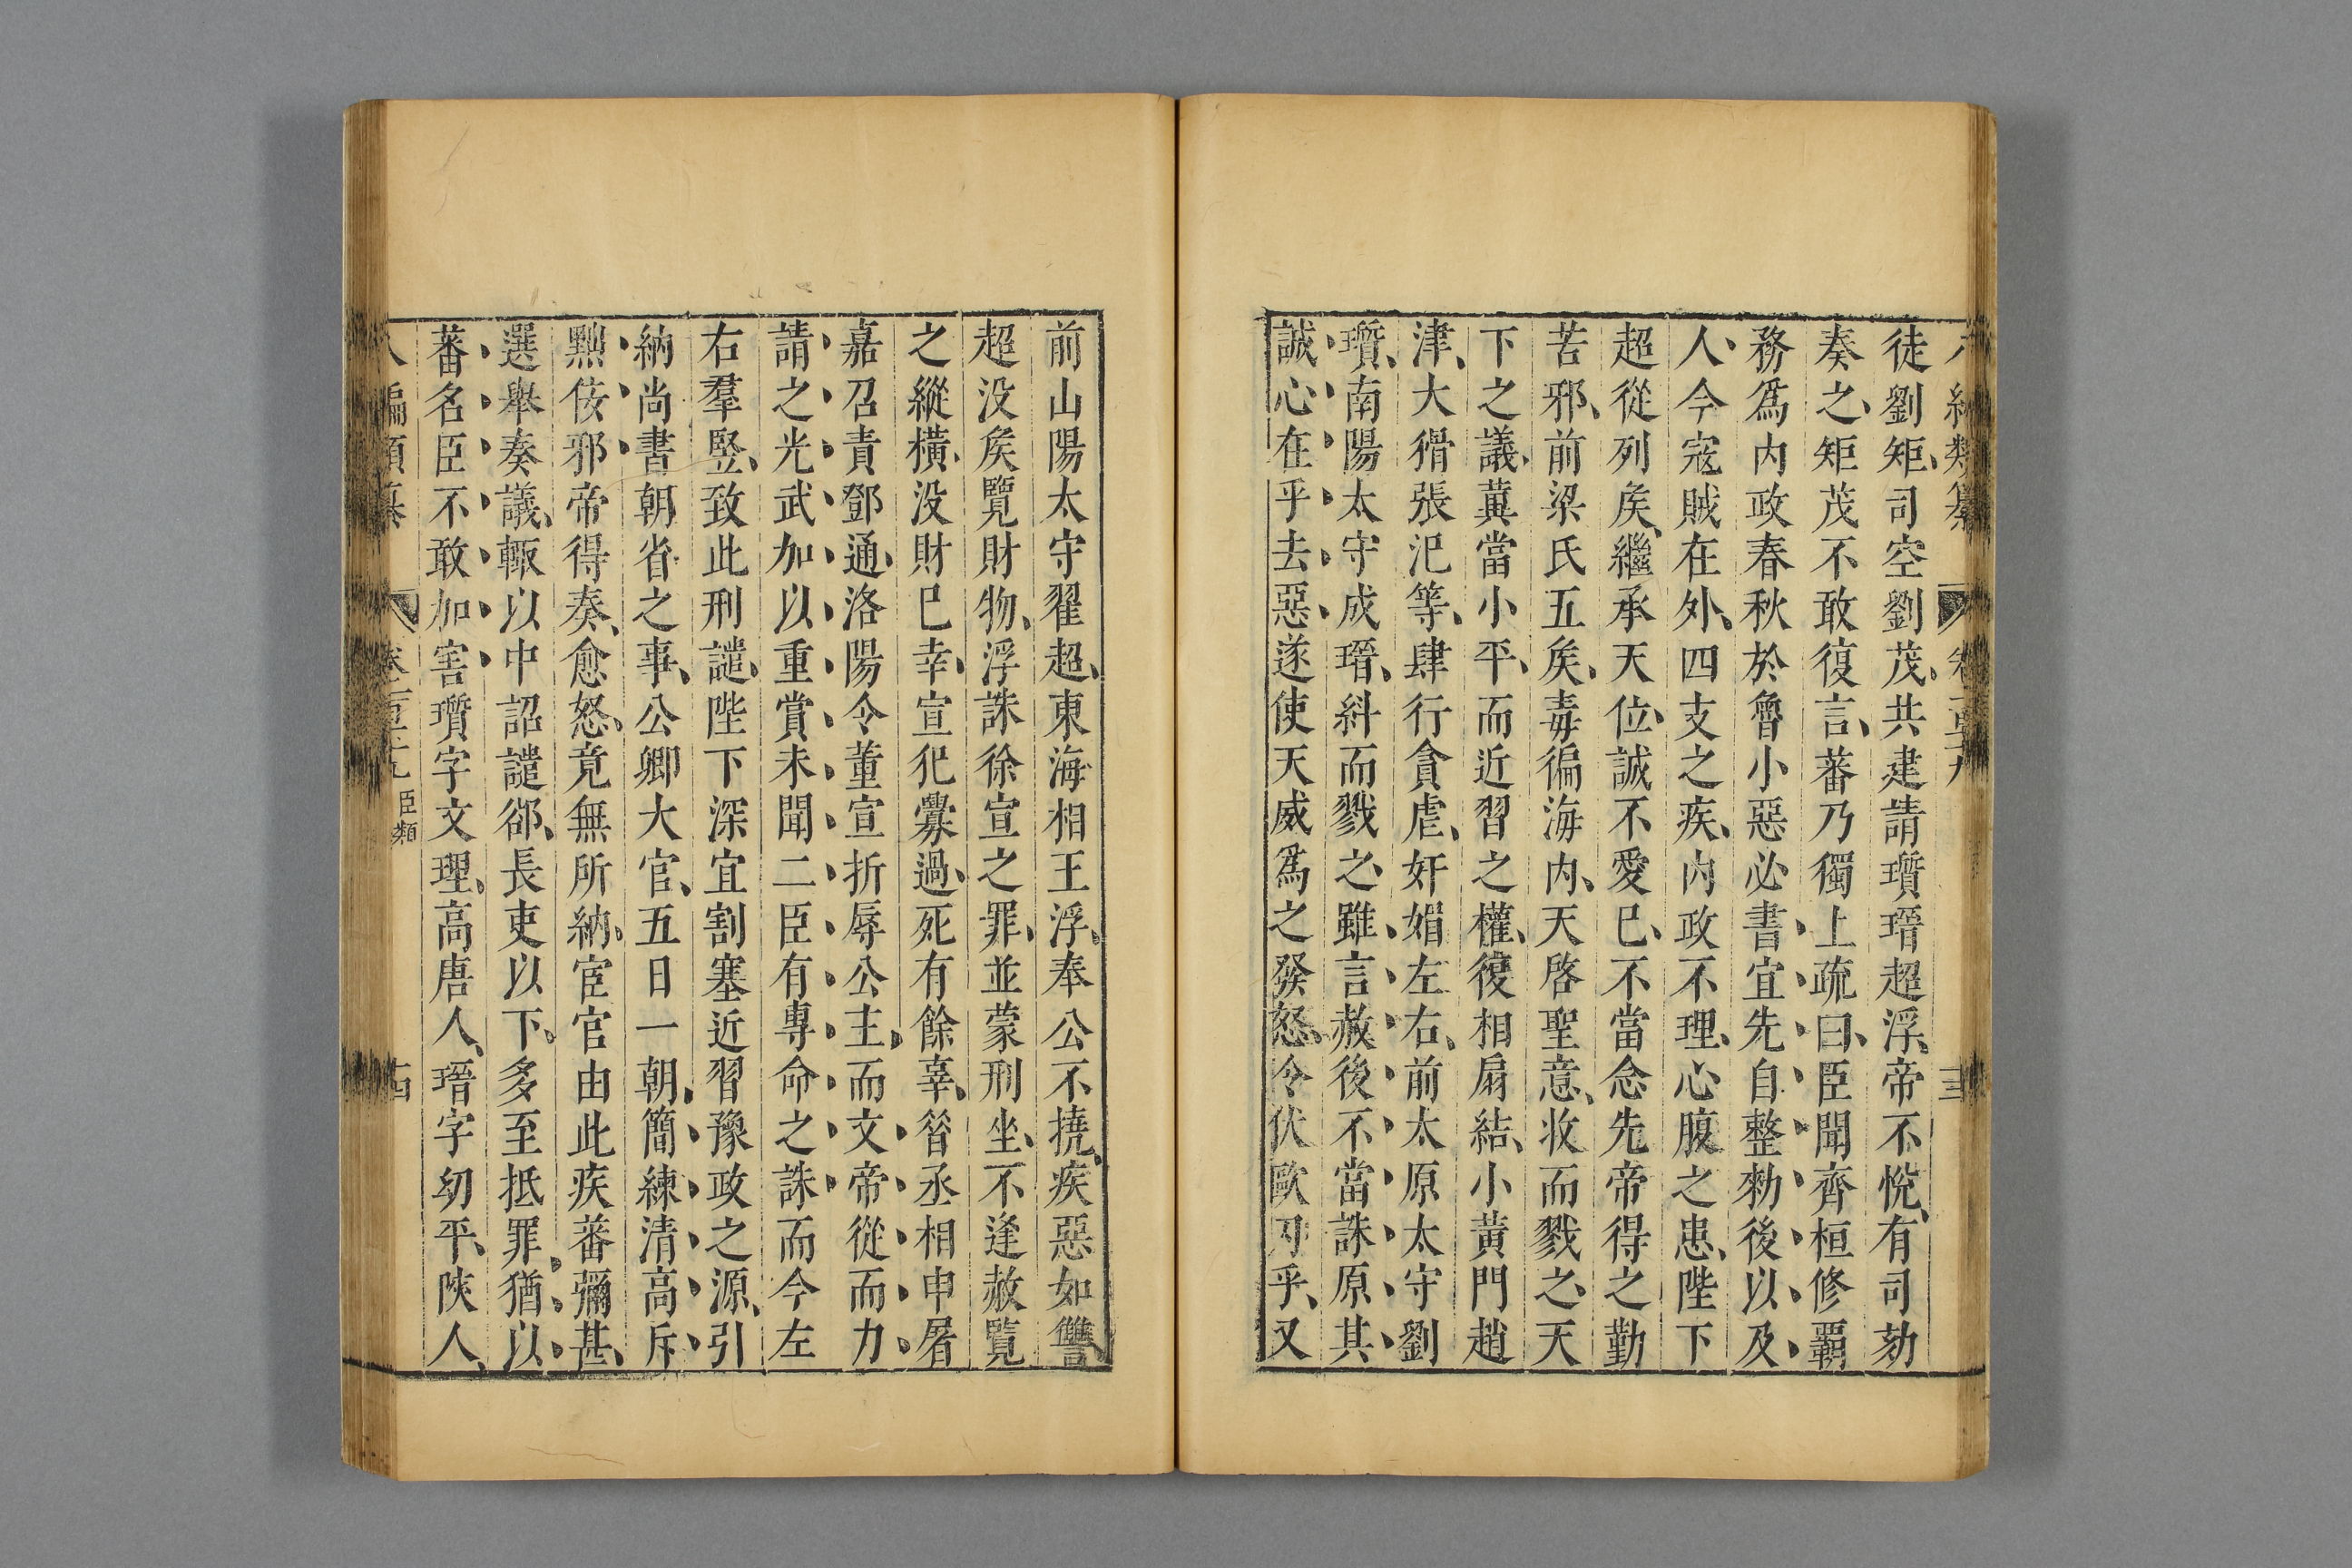 徒劉矩、司空劉茂、共建請瓆瑨超浮、帝不悅、有司劾
奏之、矩茂不敢復言、蕃乃獨上疏曰、臣聞齊桓修覇
務爲内政春秋於魯小惡必書宜先自整勑後以及
人、今寇賊在外、四支之疾、内政不理、心腹之患、陛下
超從列矦、繼承天位、誠不愛已、不當念先帝得之勤
苦邪、前梁氏五矦、毒徧海内、天啓聖意、收而戮之、天
下之議、冀當小平、而近習之權、復相扇結、小黄門趙
津、大猾張汜等、肆行貪虐、奸媚左右、前太原太守劉
瓆、南陽太守成瑨、糾而戮之、雖言赦後不當誅原其
誠心在乎去惡、遂使天威爲之發怒、令伏歐刃乎、又
前山陽太守翟超、東海相王浮、奉公不撓、疾惡如讐
超没矦覽財物、浮誅徐宣之罪、並蒙刑坐、不逢赦覽
之縱橫、没財已幸、宣犯釁過、死有餘辜、昝丞相申屠
嘉召責鄧通、洛陽令董宣折辱公主、而文帝從而力
請之光武加以重賞未聞二臣有專命之誅而今左
右羣竪、致此刑譴、陛下深宜割塞近習豫政之源、引
納尚書朝省之事、公卿大官、五日一朝、簡練清高斥
黜佞邪帝得奏、愈怒、竟無所納、宦官由此疾蕃彌甚、
選舉奏議、輒以中詔譴郤、長吏以下、多至抵罪、猶以
蕃名臣不敢加害瓆字文理、高唐人、瑨字幼平、陜人、
編類纂 臣類 十四